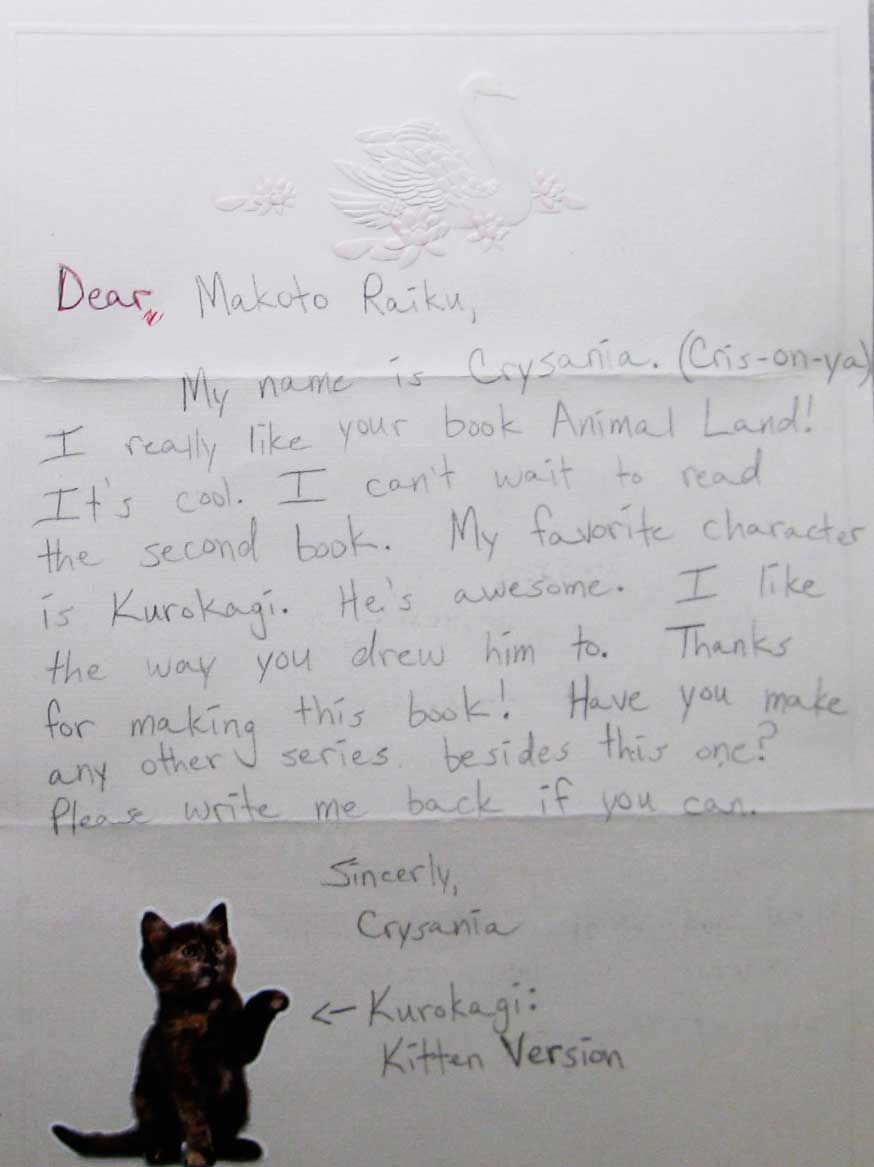 Dear, Makoto Raiku,
My name is Crysania. (Cris-on-ya)
I really like your book Animal Land!
It's cool. I can't wait to read
the second book. My favorite character
is Kurokagi. He's awesome. I like
the way you drew him to. Thanks
for making this book! Have you make
any other series besides this one?
Please write me back if you can.
Sincerly,
Crysania
<- Kurokagi:
Kitten Version